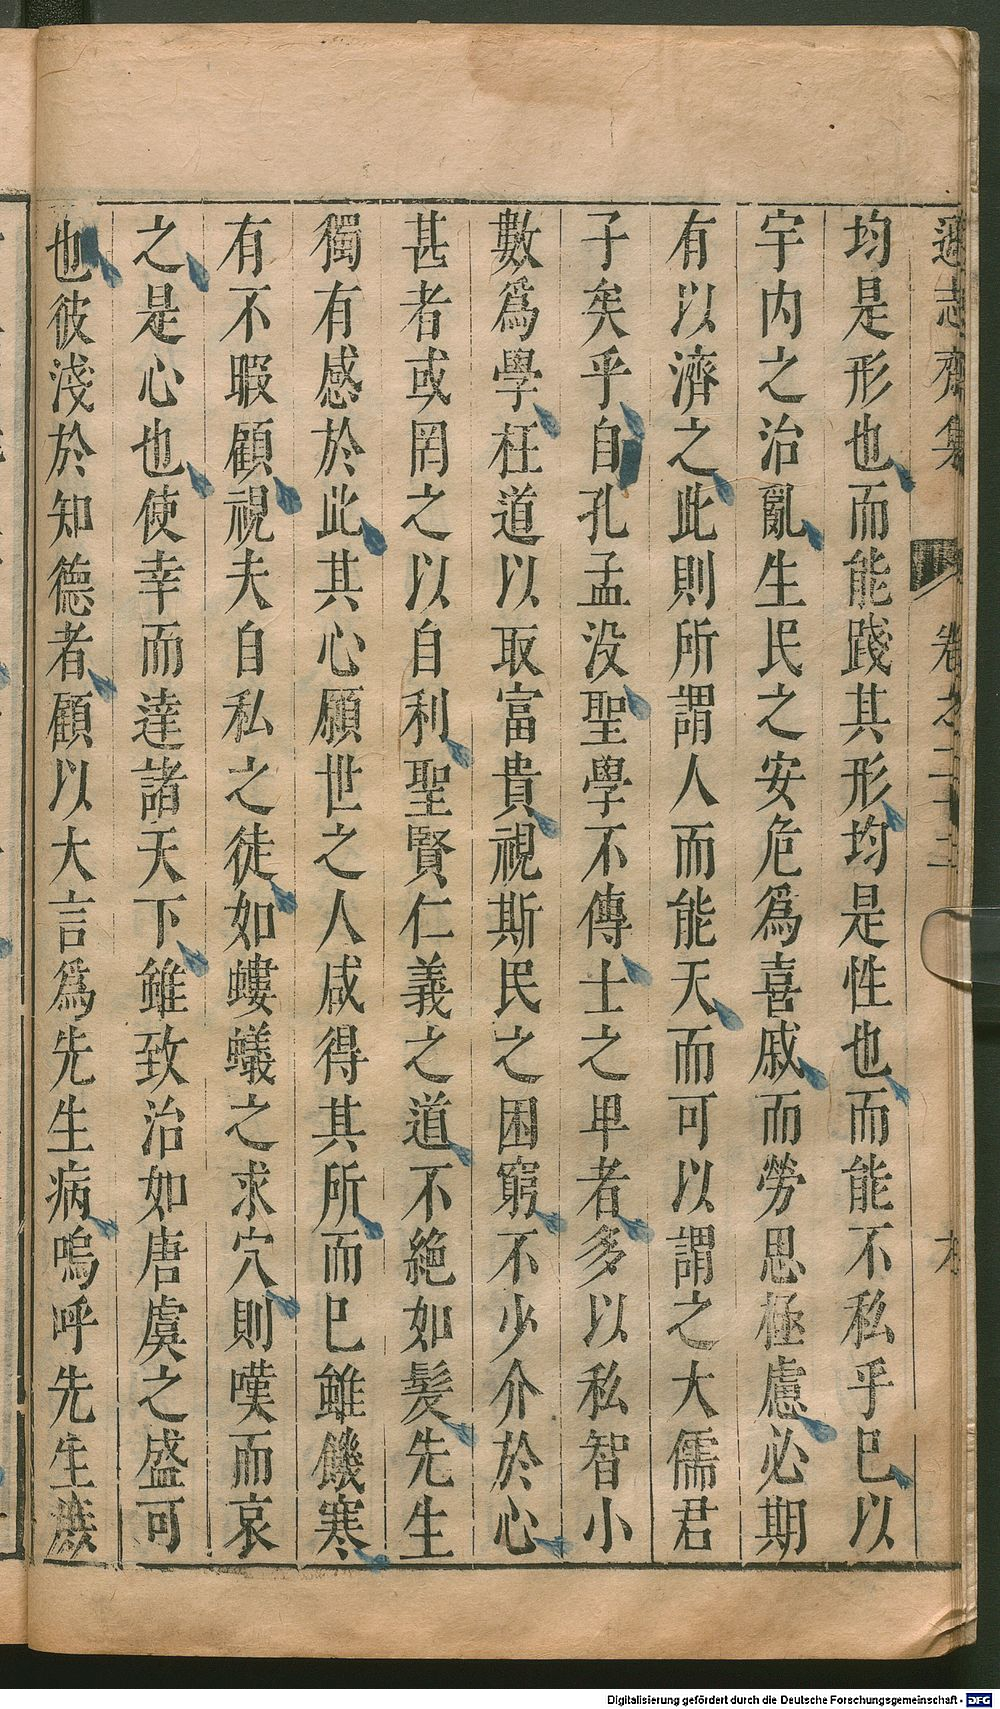 遜志齋集 卷之二十二
均是形也而能踐其形均是性也而能不私乎巳以
宇内之治亂生民之安危爲喜戚而勞思極慮必期
有以濟之此則所謂人而能天而可以謂之大儒君
子矣乎自孔孟没聖學不傳士之卑者多以私智小
數爲學枉道以取富貴視斯民之困窮不少介於心
甚者或罔之以自利聖賢仁義之道不絶如髪先生
獨有感於此其心願世之人咸得其所而巳雖饑寒
有不暇顧視夫自私之徒如螻蟻之求穴則嘆而哀
之是心也使幸而達諸天下雖致治如唐虞之盛可
也彼淺於知德者顧以大言爲先生病嗚呼先生
Digitalisierung gefördert durch die Deutsche Forschungsgemeinschaft - DFG